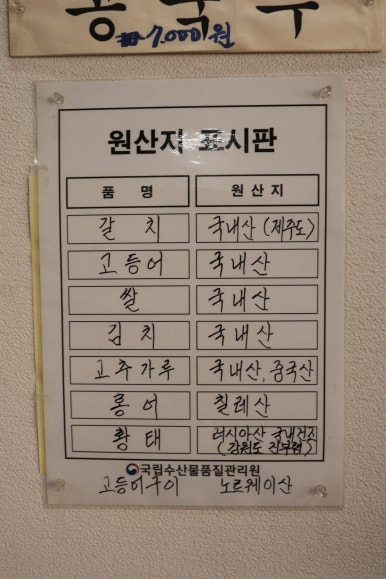 콩국수
7.000원
원산지 표시판
품 명 원 산 지
갈 치 국내산 (제주도)
고등어 국내산
쌀 국내산
김 치 국내산
고추가루 국내산, 중국산
홍 어 칠레산
황 태 러시아산 국내건조
(강원도 진부령)
국립수산물품질관리원
고등어구이 노르웨이산